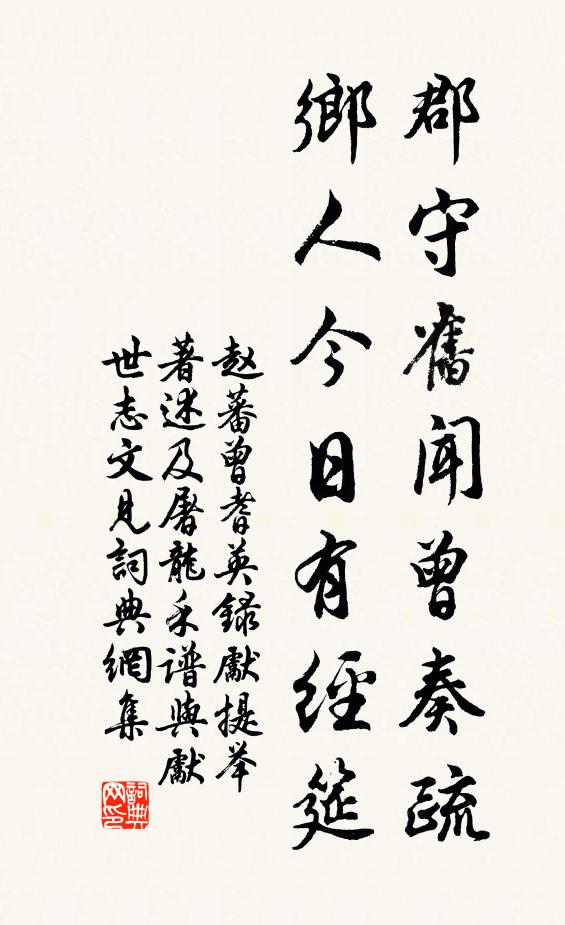 郡守舊聞曾奏疏
鄉人今日有經筵
赵蕃曾耆英録獻提举
著述及屠龍禾譜與獻
世志文見詞典網集
詞典
网印